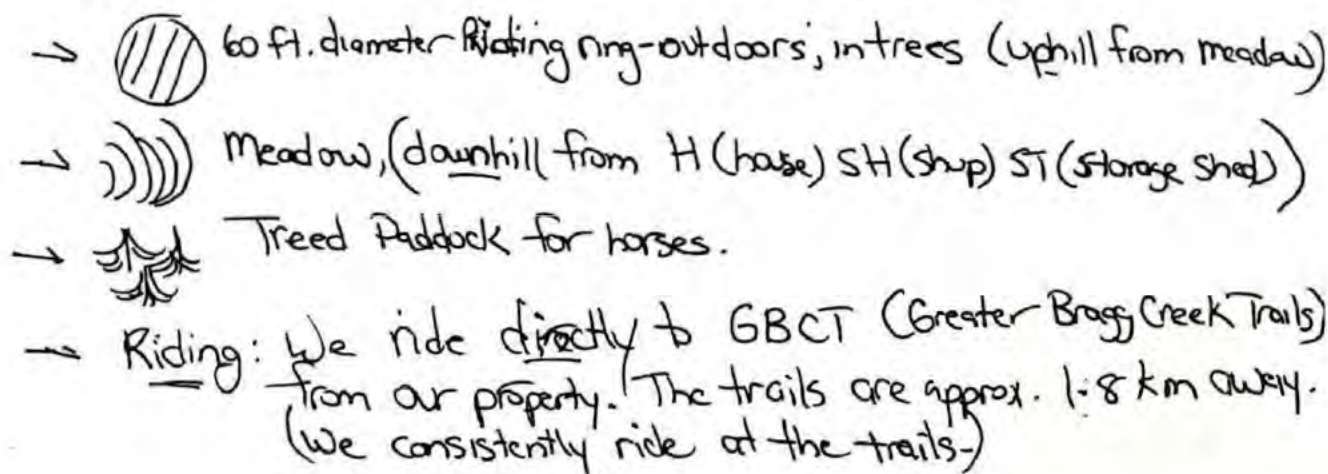 → 60 ft. diameter Riding ring - outdoors, in trees (uphill from meadow)
→ Meadow, (downhill from H (house) SH (shop) ST (storage shed))
→ Treed Paddock for horses.
→ Riding: We ride directly to GBCT (Greater Bragg Creek Trails)
from our property. The trails are approx. 1.8 km away.
(We consistently ride at the trails-)